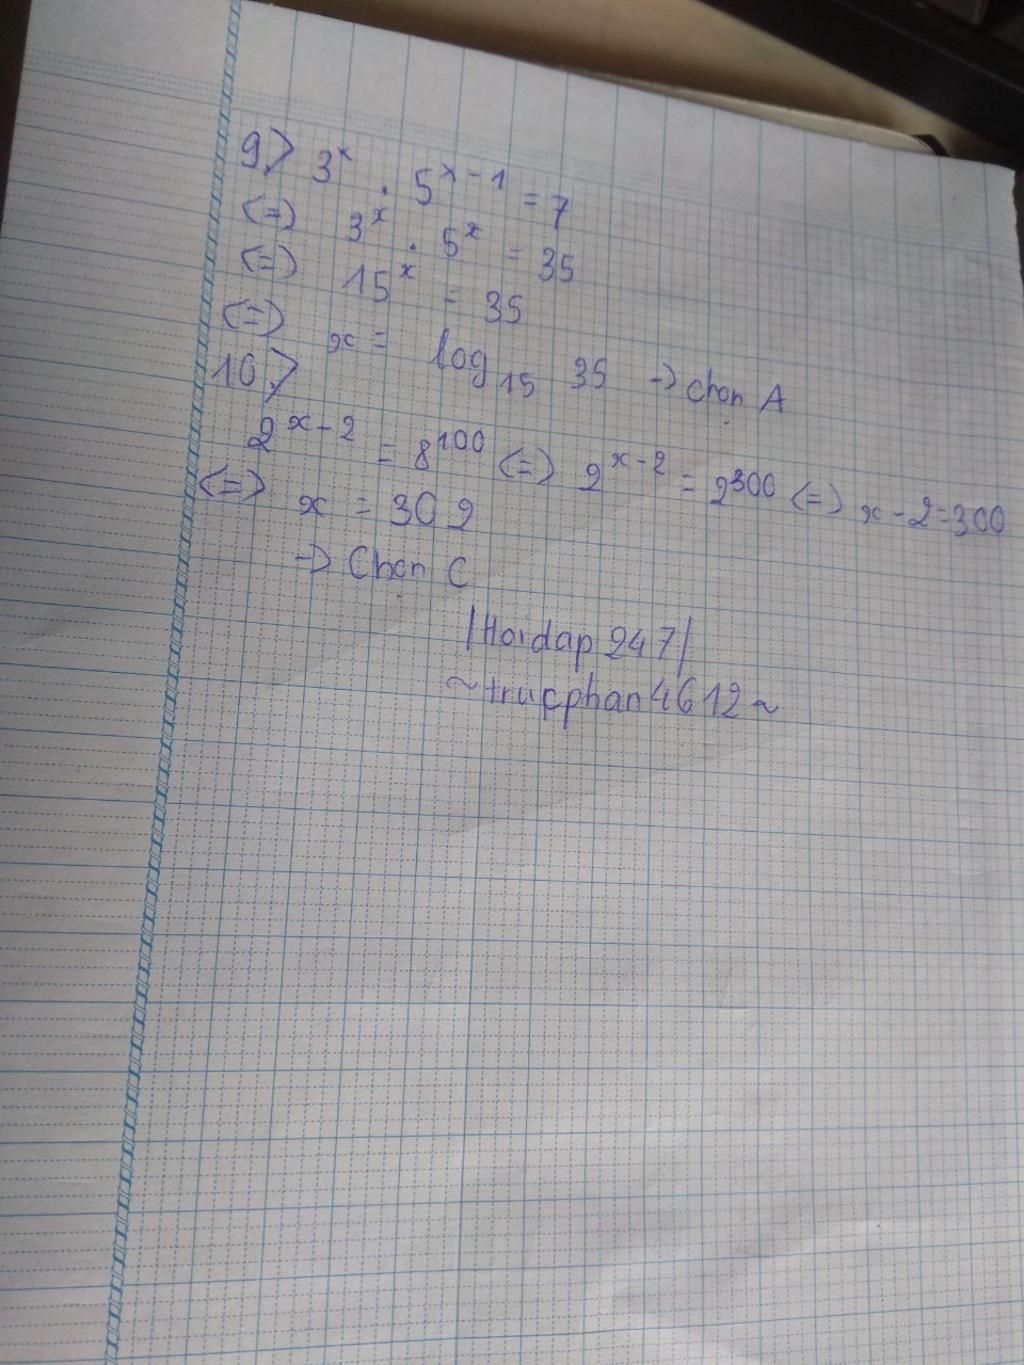 9> 3^x . 5^{x-1} = 7
(=) 3^x . 5^x = 35
(=) 15^x = 35
(=) x = log_{15} 35 -> chọn A
10>
2^{x-2} = 8^{100} (=) 2^{x-2} = 2^{300} (=) x-2=300
(=) x = 302
-> Chọn C
|Hoidap247|
~trucphan4612~